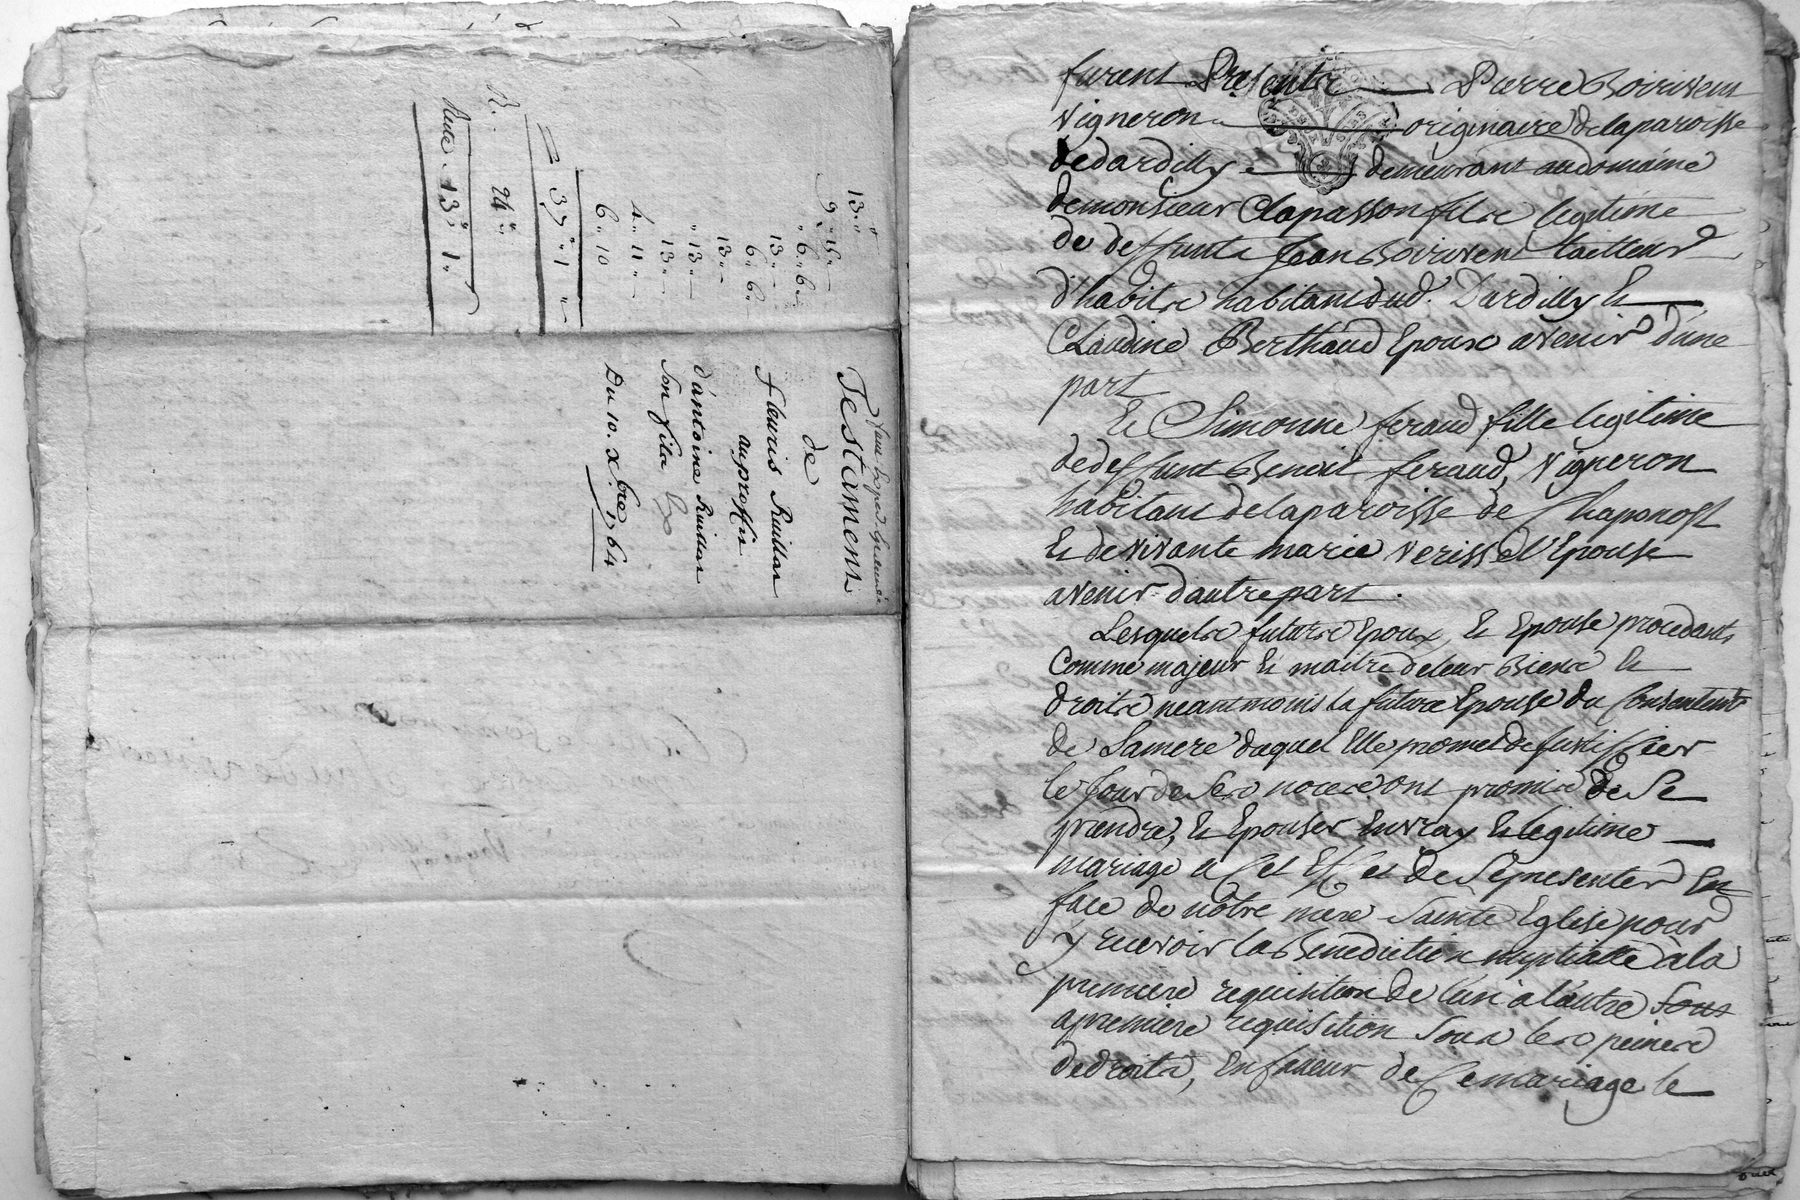 13.″
9. 15 ―
″ 6. 6 ―
13 ″
6 ″ 6 ″
13 ″
″ 13 ″
13 ″
4 ″ 11 ″
6 ″ 10
37 ″ 1 ″
R. 24 ″
13 ″ 1 ″
Testament
de
Fleuris Ruillas
au proffit
d'antoine Ruillas
son fils
Du 10. Xbre 1764
furent Presents Pierre Boiriven
Vigneron originaire de la paroisse
de dardilly demeurant au domaine
de monsieur Clapasson fils legitime
de deffunts Jean Boiriven tailleur
d'habits habitant dud. Dardilly Et
Claudine Berthaud Epoux avenir d'une
part
Et Simonne feraud fille legitime
de deffunt Benoit feraud, Vigneron
habitant de la paroisse de Chaponost
Et de vivante marie verissel Epouse
avenir d'autre part.
Lesquels futurs Epoux, Et Epouse procedants
Comme majeur Et maitre de leur Biens Et
droits neantmoins la future Epouse du Consentement
de Sa mere duquel Elle promet de justiffier
le Jour de Ses noces ont promis de Se
prendre, Et Epouser En vray Et legitime
mariage a Cet Effet de Se presenter En
face de nôtre mere Sainte Eglise pour
y recevoir la Benediction nuptialle a la
premiere requisition de l'un a l'autre Sous
a premiere requisition Sous les peines
de droits, En faveur de Ce mariage le